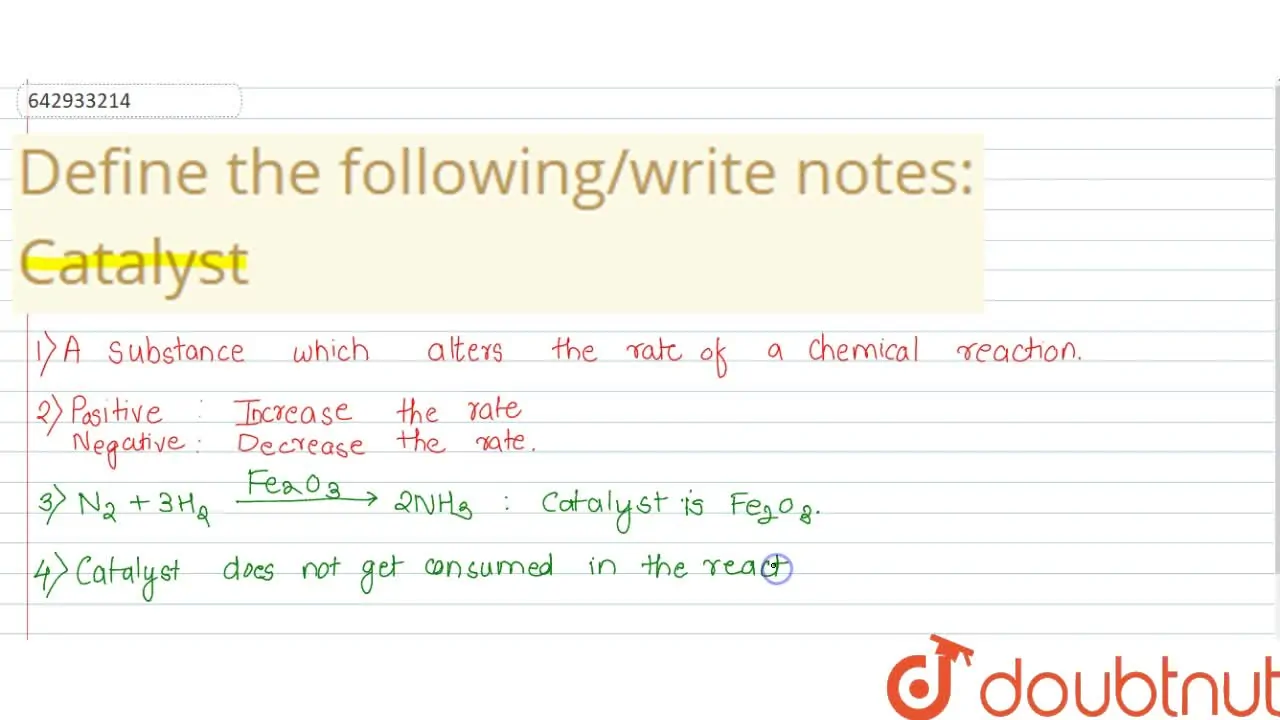 642933214
Define the following/write notes:
Catalyst
1) A substance which alters the rate of a chemical reaction.
2) Positive : Increase the rate
Negative : Decrease the rate.
3) N₂ + 3H₂ Fe₂O₃ → 2NH₃ : Catalyst is Fe₂O₃.
4) Catalyst does not get consumed in the react
doubtnut